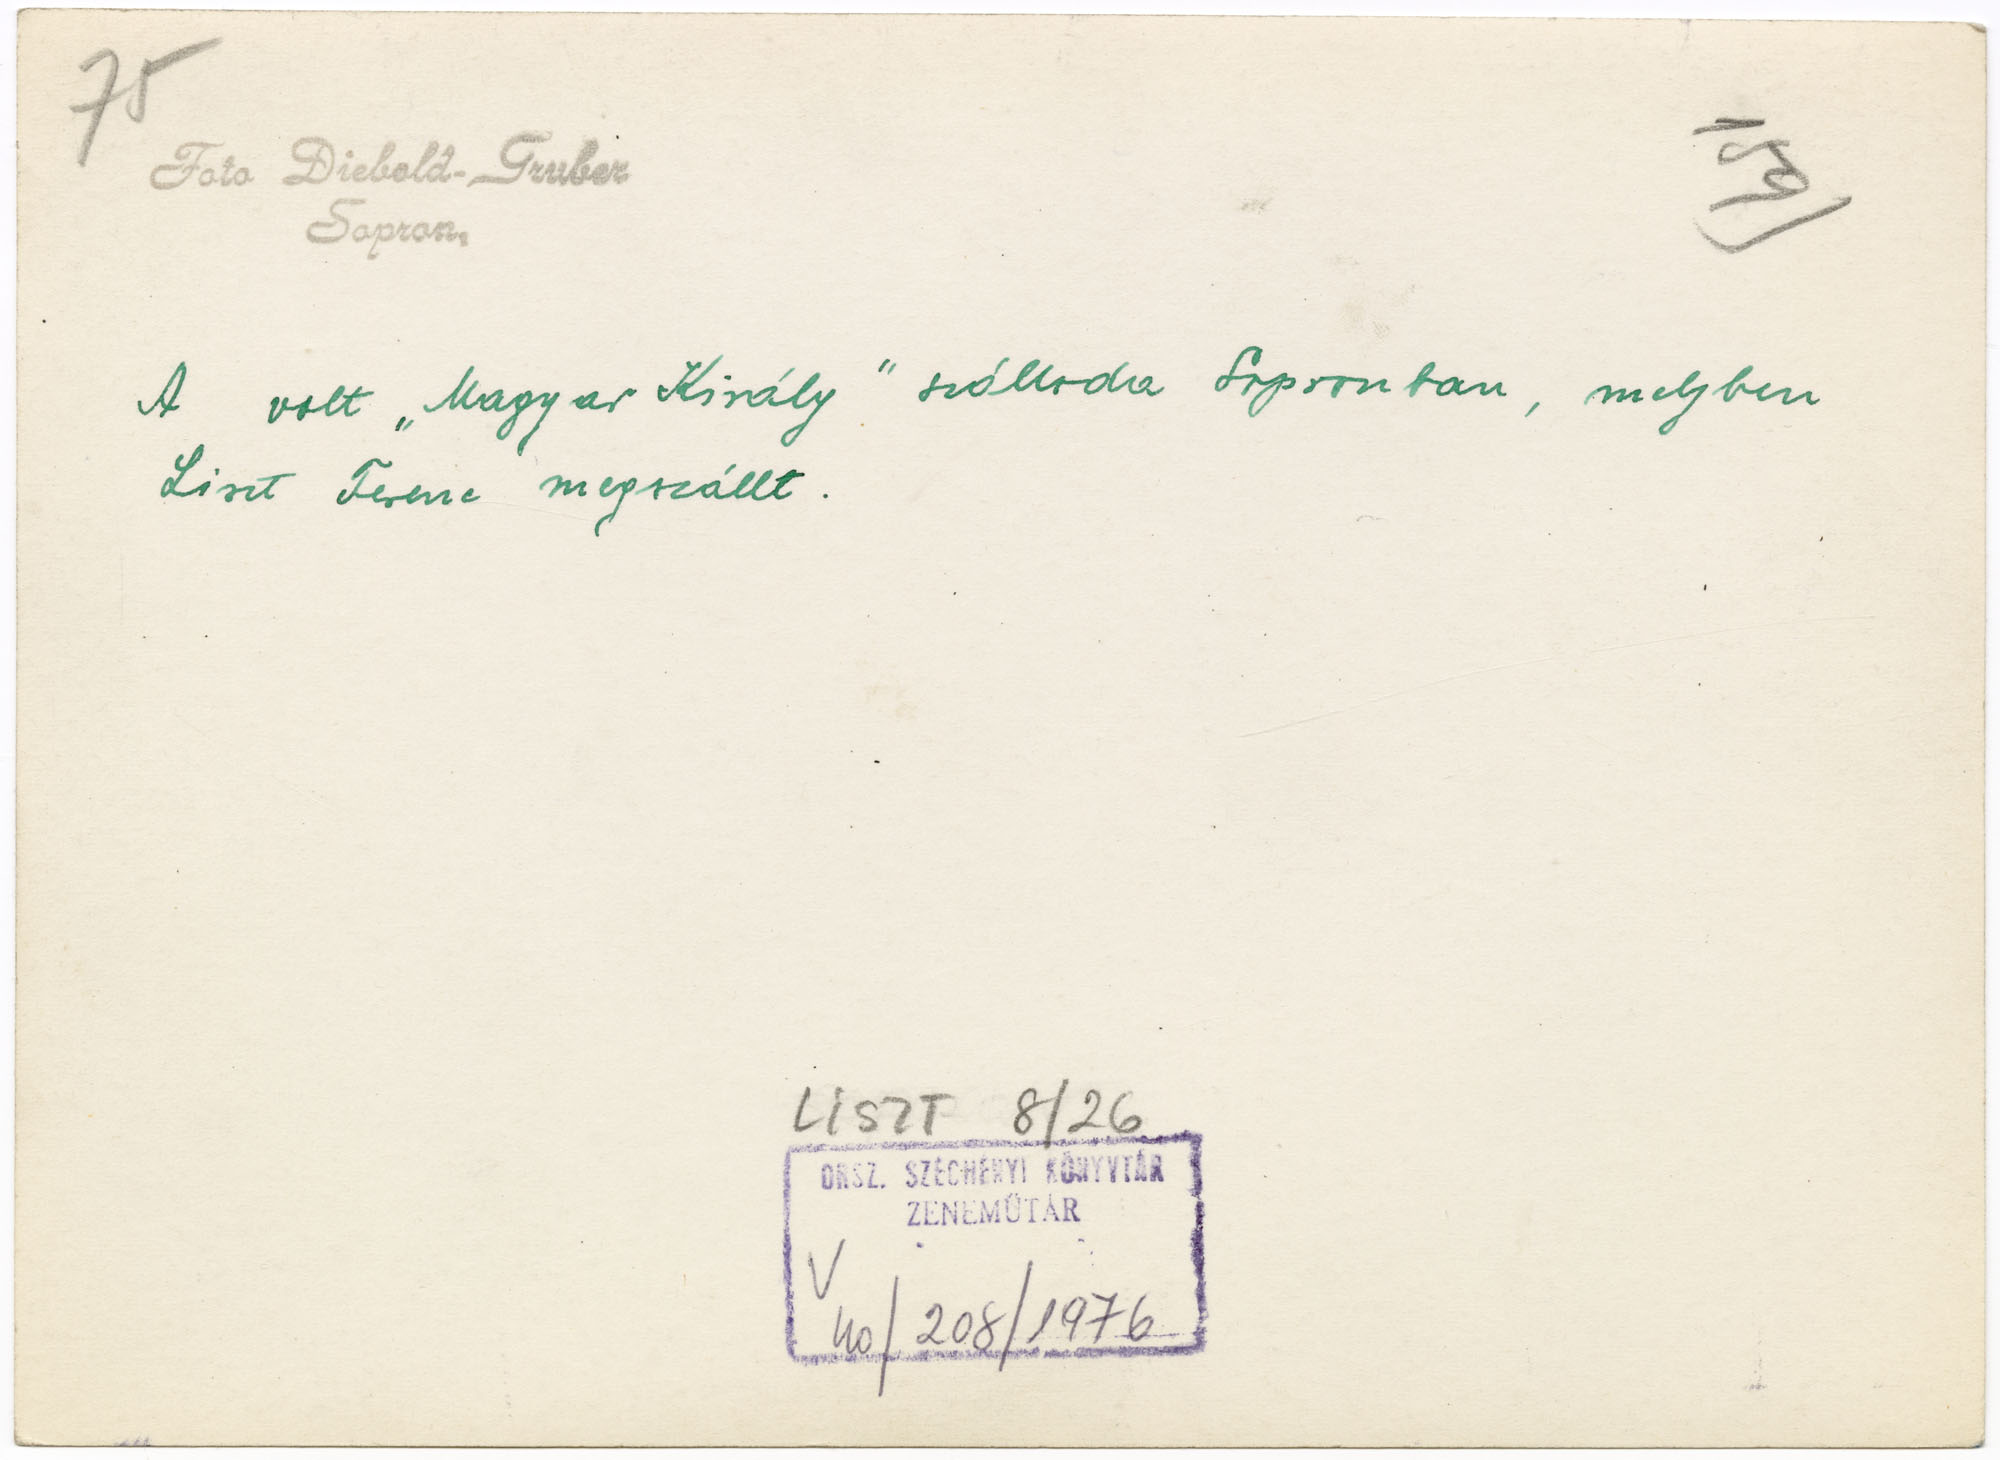 75
159
Foto Diebold-Gruber
Sopron.
A volt „Magyar Király" szálloda Sopronban, melyben
Liszt Ferenc megszállt.
LISZT 8/26
ORSZ. SZÉCHÉNYI KÖNYVTÁR
ZENEMŰTÁR
V
40/208/1976